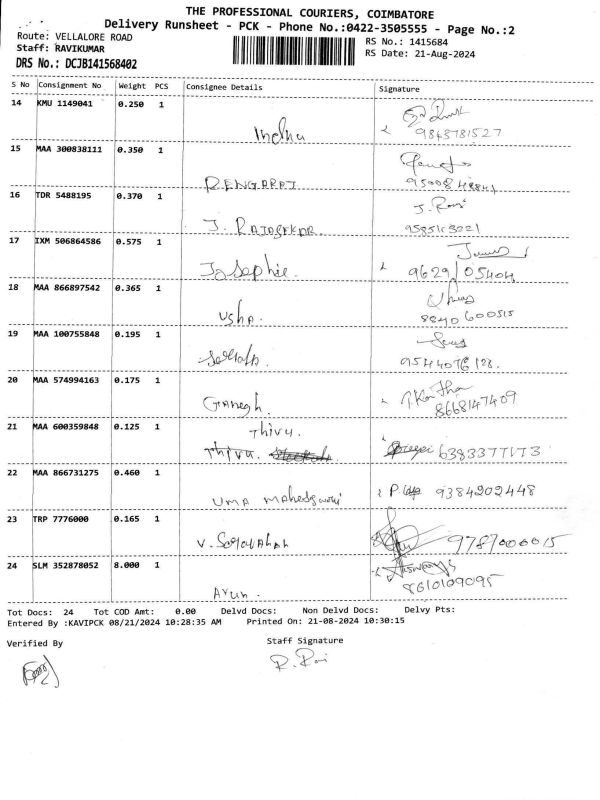 THE PROFESSIONAL COURIERS, COIMBATORE
Delivery Runsheet - PCK - Phone No.:0422-3505555 - Page No.:2
Route: VELLALORE ROAD
Staff: RAVIKUMAR
DRS No.: DCJB141568402
RS No.: 1415684
RS Date: 21-Aug-2024
S No Consignment No Weight PCS Consignee Details Signature
14 KMU 1149041 0.250 1
Indhu 9843781527
15 MAA 300838111 0.350 1
RENGARAJ
16 TDR 5488195 0.370 1
J. RAJASEKAR J. Raj
17 IXM 506864586 0.575 1
Josephie. 9629105404
18 MAA 866897542 0.365 1
Usha. Usha
8840600515
19 MAA 100755848 0.195 1
9544076128.
20 MAA 574994163 0.175 1
Ganegh. 8668147409
21 MAA 600359848 0.125 1
Thivu.
Thivu. 6383377173
22 MAA 866731275 0.460 1
UMA 9384202448
23 TRP 7776000 0.165 1
V. 9789000015
24 SLM 352878052 8.000 1
Arun. 8610109095
Tot Docs: 24 Tot COD Amt: 0.00 Delvd Docs: Non Delvd Docs: Delvy Pts:
Entered By :KAVIPCK 08/21/2024 10:28:35 AM Printed On: 21-08-2024 10:30:15
Verified By Staff Signature